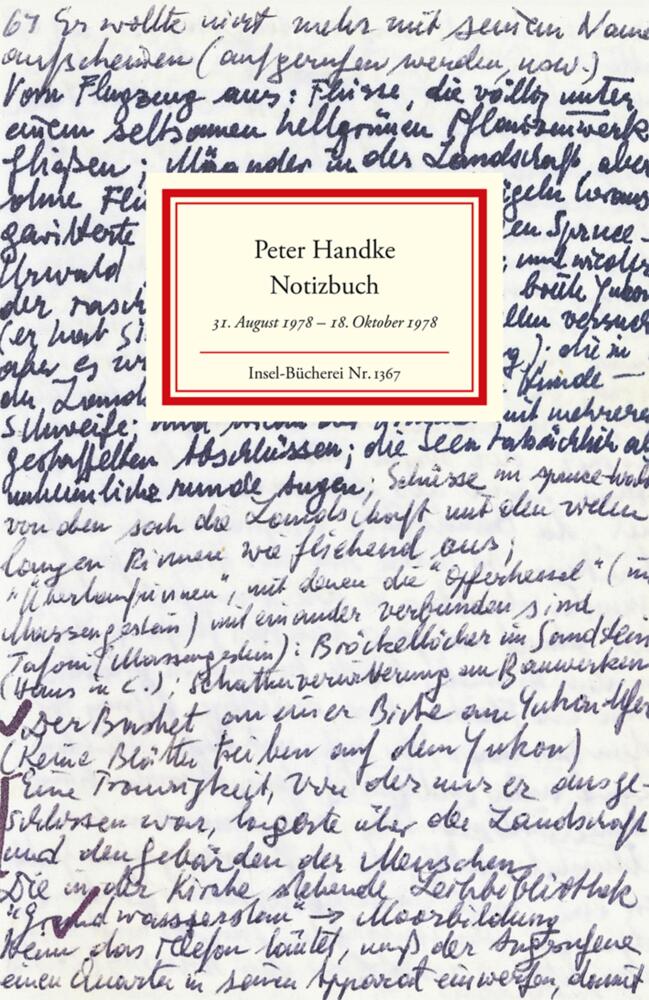 67 Er wollte nicht mehr mit seinem Name
aufscheinen (aufgerufen werden, usw.)
Vom Flugzeug aus: Flüsse, die völlig unter
einem seltsamen hellgrünen Pflanzenwerk
fließen; Mäander in der Landschaft, aber
ohne Flü geln heraus
gewitterte en Spruce-
Urwald und wieder
der rasch breite Yukon
(er hat Si llen versuch
aber es wi die in
der Land Hunde —
Schweife. mit mehreren
gestaffelten Abschlüssen; die Seen tatsächlich al
unheimliche runde Augen; Schüsse im spruce-Wald
von oben sah die Landschaft mit den vielen
langen Rinnen wie fliehend aus;
"Überlaufrinnen", mit denen die "Opferkessel" (im
Massengestein) miteinander verbunden sind
Tafoni (Massengestein): Bröckellöcher im Sandstein
(Haus in C.); Schattenverwitterung an Bauwerken
Der Basket an einer Birke am Yukonufer
(Keine Blätter treiben auf dem Yukon)
Eine Traurigkeit, von der nur er ausge-
schlossen war, lagerte über der Landschaft
und den Gebärden der Menschen
Die in der Kirche stehende Leihbibliothek
"Grundwasserstau" → Moorbildung
Wenn das Telefon läutet, muß der Angerufene
einen Quarter in seinen Apparat einwerfen, damit
Peter Handke
Notizbuch
31. August 1978 – 18. Oktober 1978
Insel-Bücherei Nr. 1367